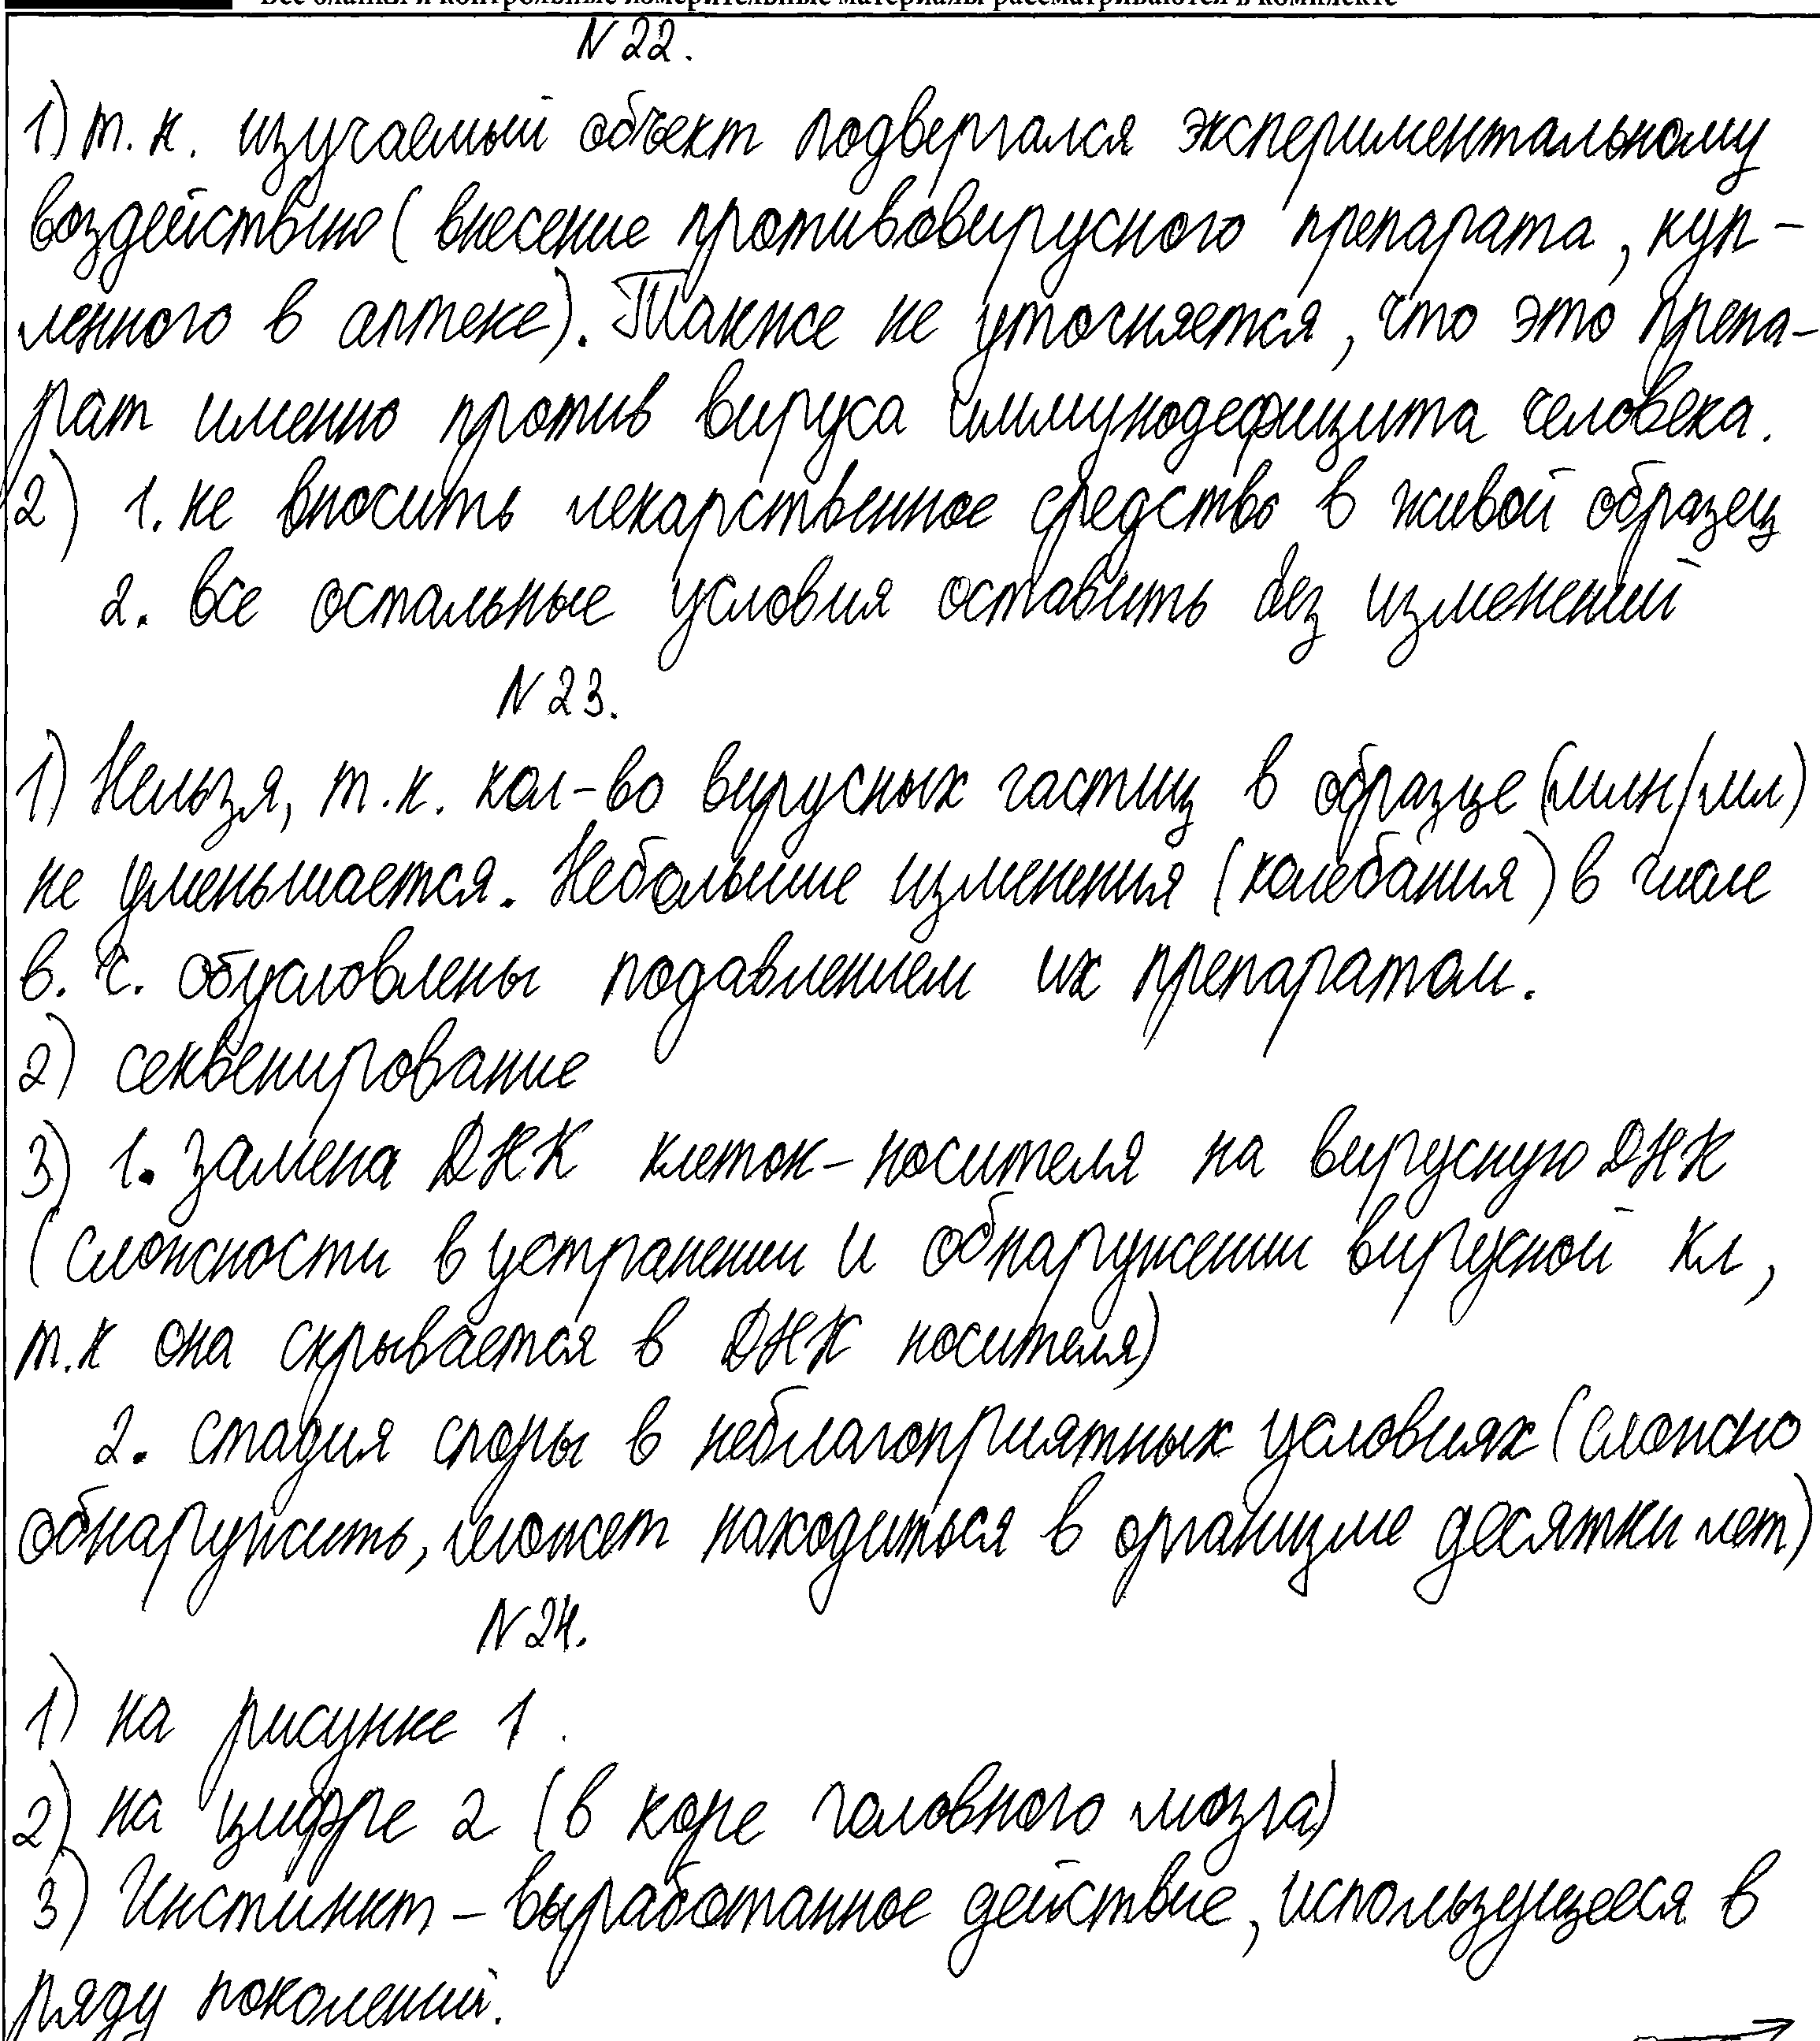 Все бланки и контрольные измерительные материалы рассматриваются в комплекте
N 22.
1) т. к. изучаемый объект подвергался экспериментальному
воздействию (внесение противовирусного препарата, куп-
ленного в аптеке). Также не уточняется, что это препа-
рат именно против вируса иммунодефицита человека.
2) 1. не вносить лекарственное средство в живой образец
2. все остальные условия оставить без изменений
N 23.
1) Нельзя, т. к. кол-во вирусных частиц в образце (млн/мл)
не уменьшается. Небольшие изменения (колебания) в числе
в. ч. обусловлены подавлением их препаратом.
2) секвенирование
3) 1. замена ДНК клеток-носителя на вирусную ДНК
(сложности в устранении и обнаружении вирусной кл,
т.к она скрывается в ДНК носителя)
2. стадия споры в неблагоприятных условиях (сложно
обнаружить, может находиться в организме десятки лет)
N 24.
1) на рисунке 1.
2) на цифре 2 (в коре головного мозга)
3) Инстинкт – выработанное действие, использующееся в
ряду поколений.